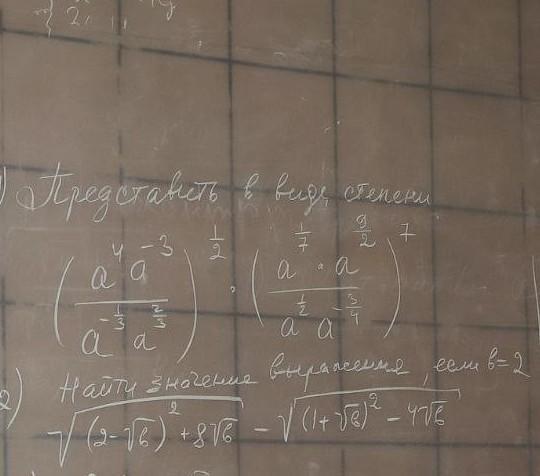 { 2,
1) Представить в виде степени
(a^4 a^{-3} / a^{-1/3} a^{2/3})^{1/2} · (a^{1/7} · a^{9/2} / a^{1/2} a^{-3/4})^7
2) Найти значение выражения, если b=2
√((2-√b)^2 + 8√b) - √((1+√b)^2 - 4√b)